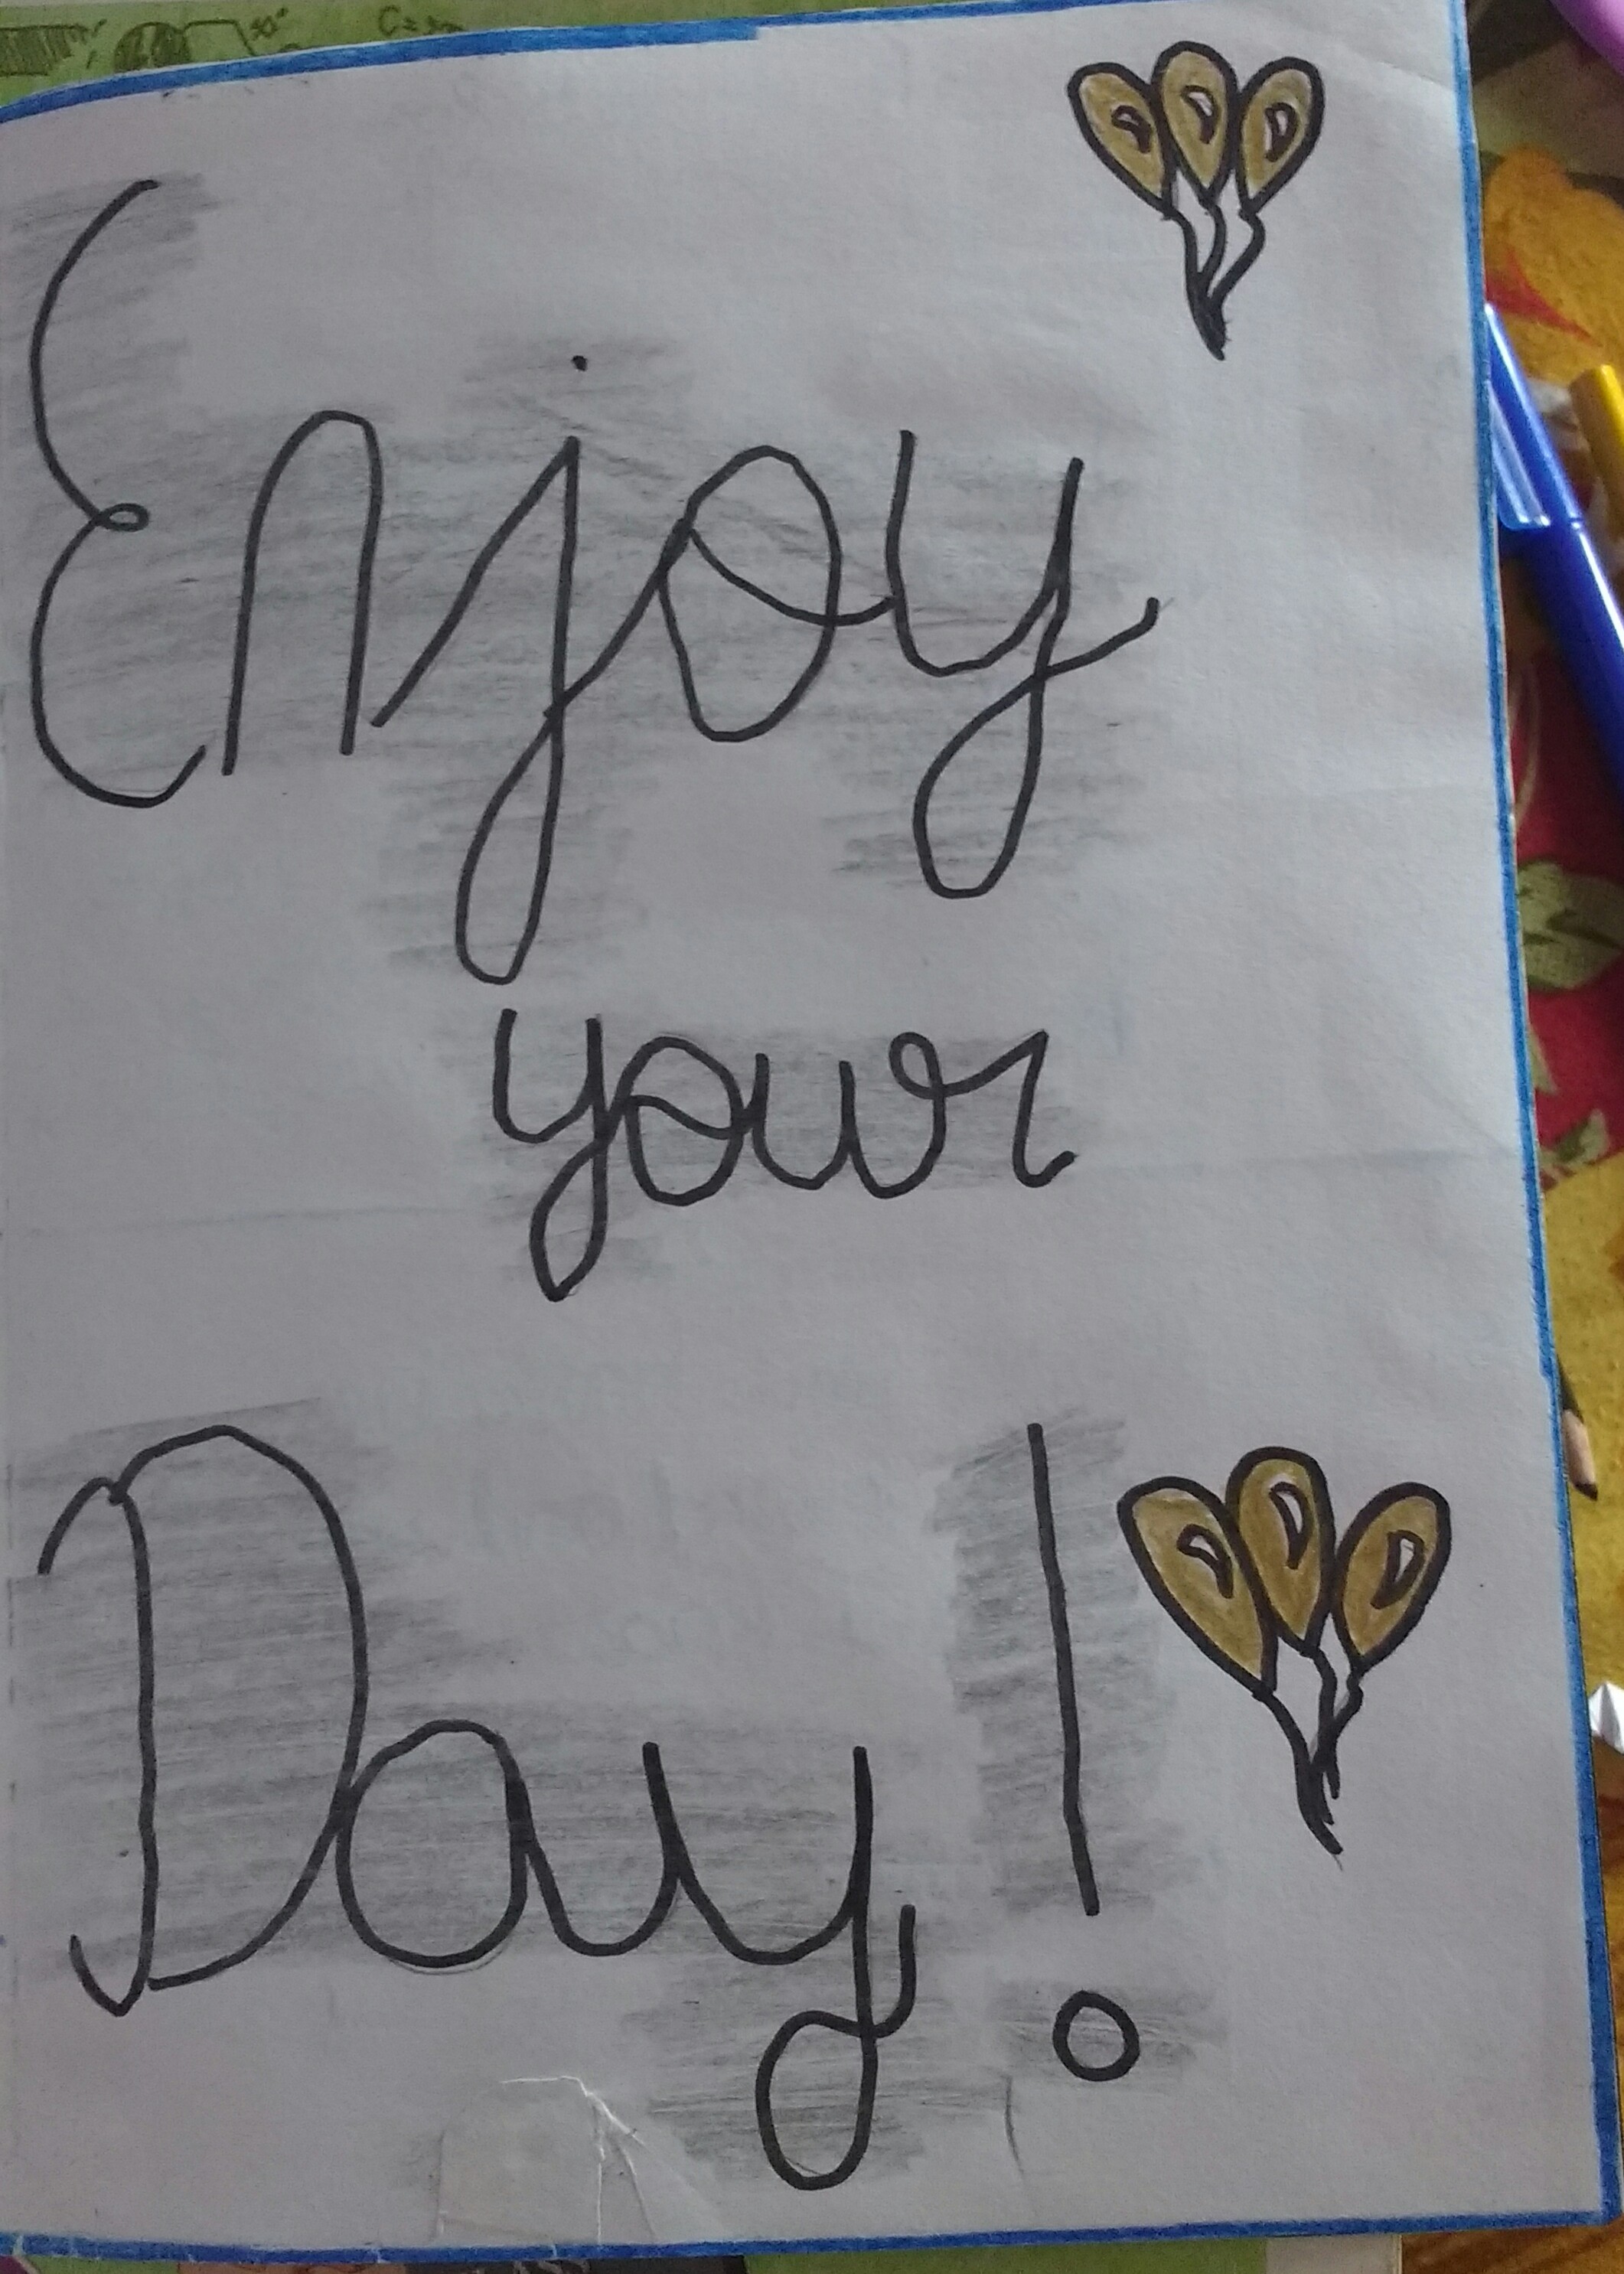 Enjoy
your
Day!